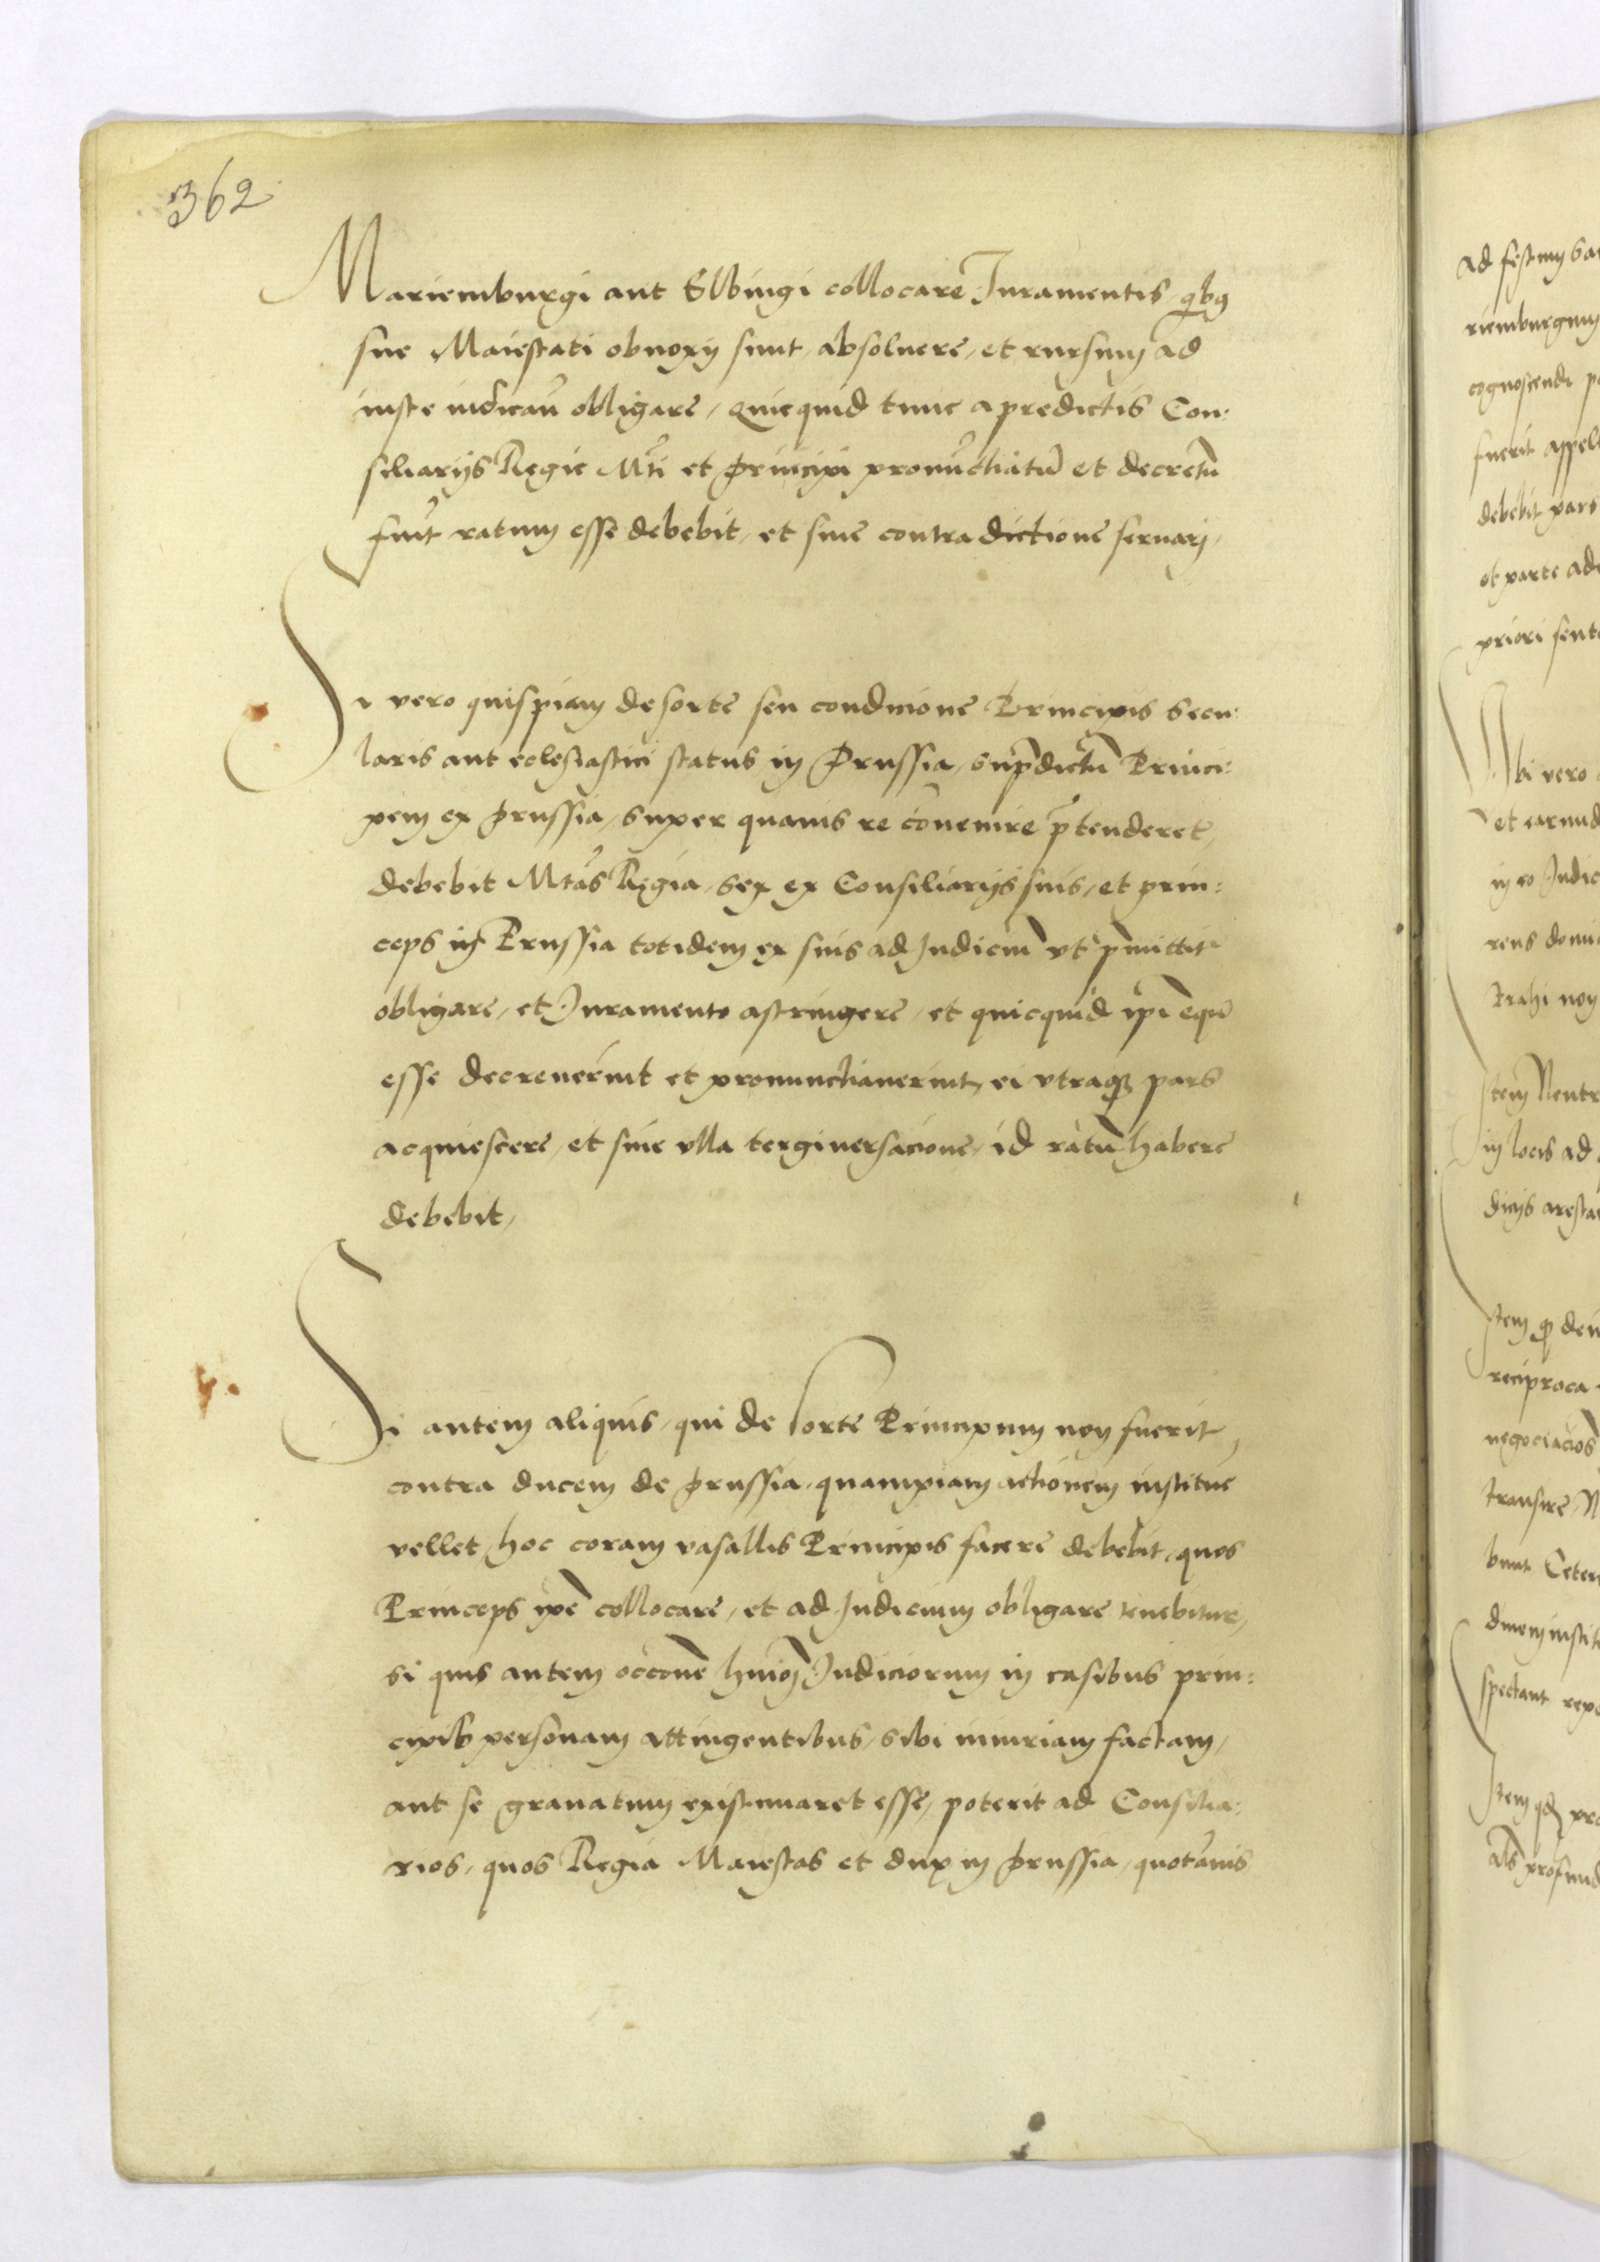 362
Mariemburgi aut Elbingi collocare Iuramentis qbg
sue Maiestati obnoxij sunt, absoluere, et rursum ad
iuste iudicau͂ obligare, quicquid tunc a predictis Con:
siliarijs Regie Mti et principi pronu͂ctiatu͂ et decretu͂
fu͂it ratum esse debebit, et sine contradictione seruari,
Si vero quispiam de sorte seu condicione Principis secu:
laris aut ecclesiastici status in Prussia, sup̄dictu͂ Princi:
pem ex prussia, super quauis re co͂uenire p̄tenderet,
debebit Mtas Regia, sex ex Consiliarijs suis, et prin:
ceps in Prussia totidem ex suis ad Iudiciu͂ vt p̄mittit
obligare, et Iuramento astringere, et quicquid ip̄i equ͂
esse decreuerint et pronunctiauerint, ei vtraq3 pars
acquiescere, et sine vlla tergiuersacione, id ratu͂ habere
debebit,
Si autem aliquis, qui de sorte Principum non fuerit,
contra ducem de prussia, quampiam actionem instituē
vellet, hoc coram vasallis Principis facere debebit, quos
Princeps ip̄e collocare, et ad Iudicium obligare tenebitur,
si quis autem occōne huiōi Iudiciorum in casibus prin:
cipis personam attingentibus, sibi iniuriam factam,
aut se grauatum existimaret esse, poterit ad Consilia:
rios, quos Regia Maiestas et dux in prussia, quota͂nis
ad festum
riemburgum
cognoscendi
fuerit
debebit pars
et parte
priori
Vbi vero
et
in eo
reus
trahi non
Item Neutr
in locis ad
Item
reciproca
transire
spectant
Item